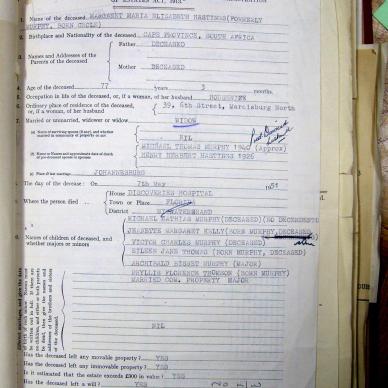 OF ESTATES ACT, 1913."
1. Name of the deceased MARGARET MARIA ELIZABETH HASTINGS(FORMERLY
MURPHY, BORN
2. Birthplace and Nationality of the deceased CAPE PROVINCE, SOUTH AFRICA
3. Names and Addresses of the Parents of the deceased
Father DECEASED
Mother DECEASED
4. Age of the deceased 77 years 3 months.
5. Occupation in life of the deceased, or, if a woman, of her husband HOUSEWIFE
6. Ordinary place of residence of the deceased, or, if a woman, of her husband 39, 6th Street, Marcisburg North
7. Married or unmarried, widower or widow WIDOW
(a) Name of surviving spouse (if any), and whether married in community of property or not
NIL
(b) Name or Names and approximate date of death of pre-deceased spouse or spouses
MICHAEL THOMAS MURPHY (Approx)
HENRY HERBERT HASTINGS 1926
(c) Place of last marriage JOHANNESBURG
The day of the decease : On 7th May 1951
Where the person died
House DISCOVERIES HOSPITAL
Town or Place FLORIDA
District
Names of children of deceased, and whether majors or minors
MICHAEL MATHIAS MURPHY(DECEASED)(NO
JEANETTE MARGARET KELLY(BORN MURPHY,DECEASED
VICTOR CHARLES MURPHY (DECEASED)
EILEEN JANE THOMAS (BORN MURPHY, DECEASED)
ARCHIBALD MURPHY (MAJOR)
PHYLLIS FLORENCE THOMSON (BORN MURPHY)
MARRIED COM. PROPERTY MAJOR
NIL
Has the deceased left any movable property? YES
Has the deceased left any immovable property? YES
Is it estimated that the estate exceeds £300 in value? YES
Has the deceased left a will? YES